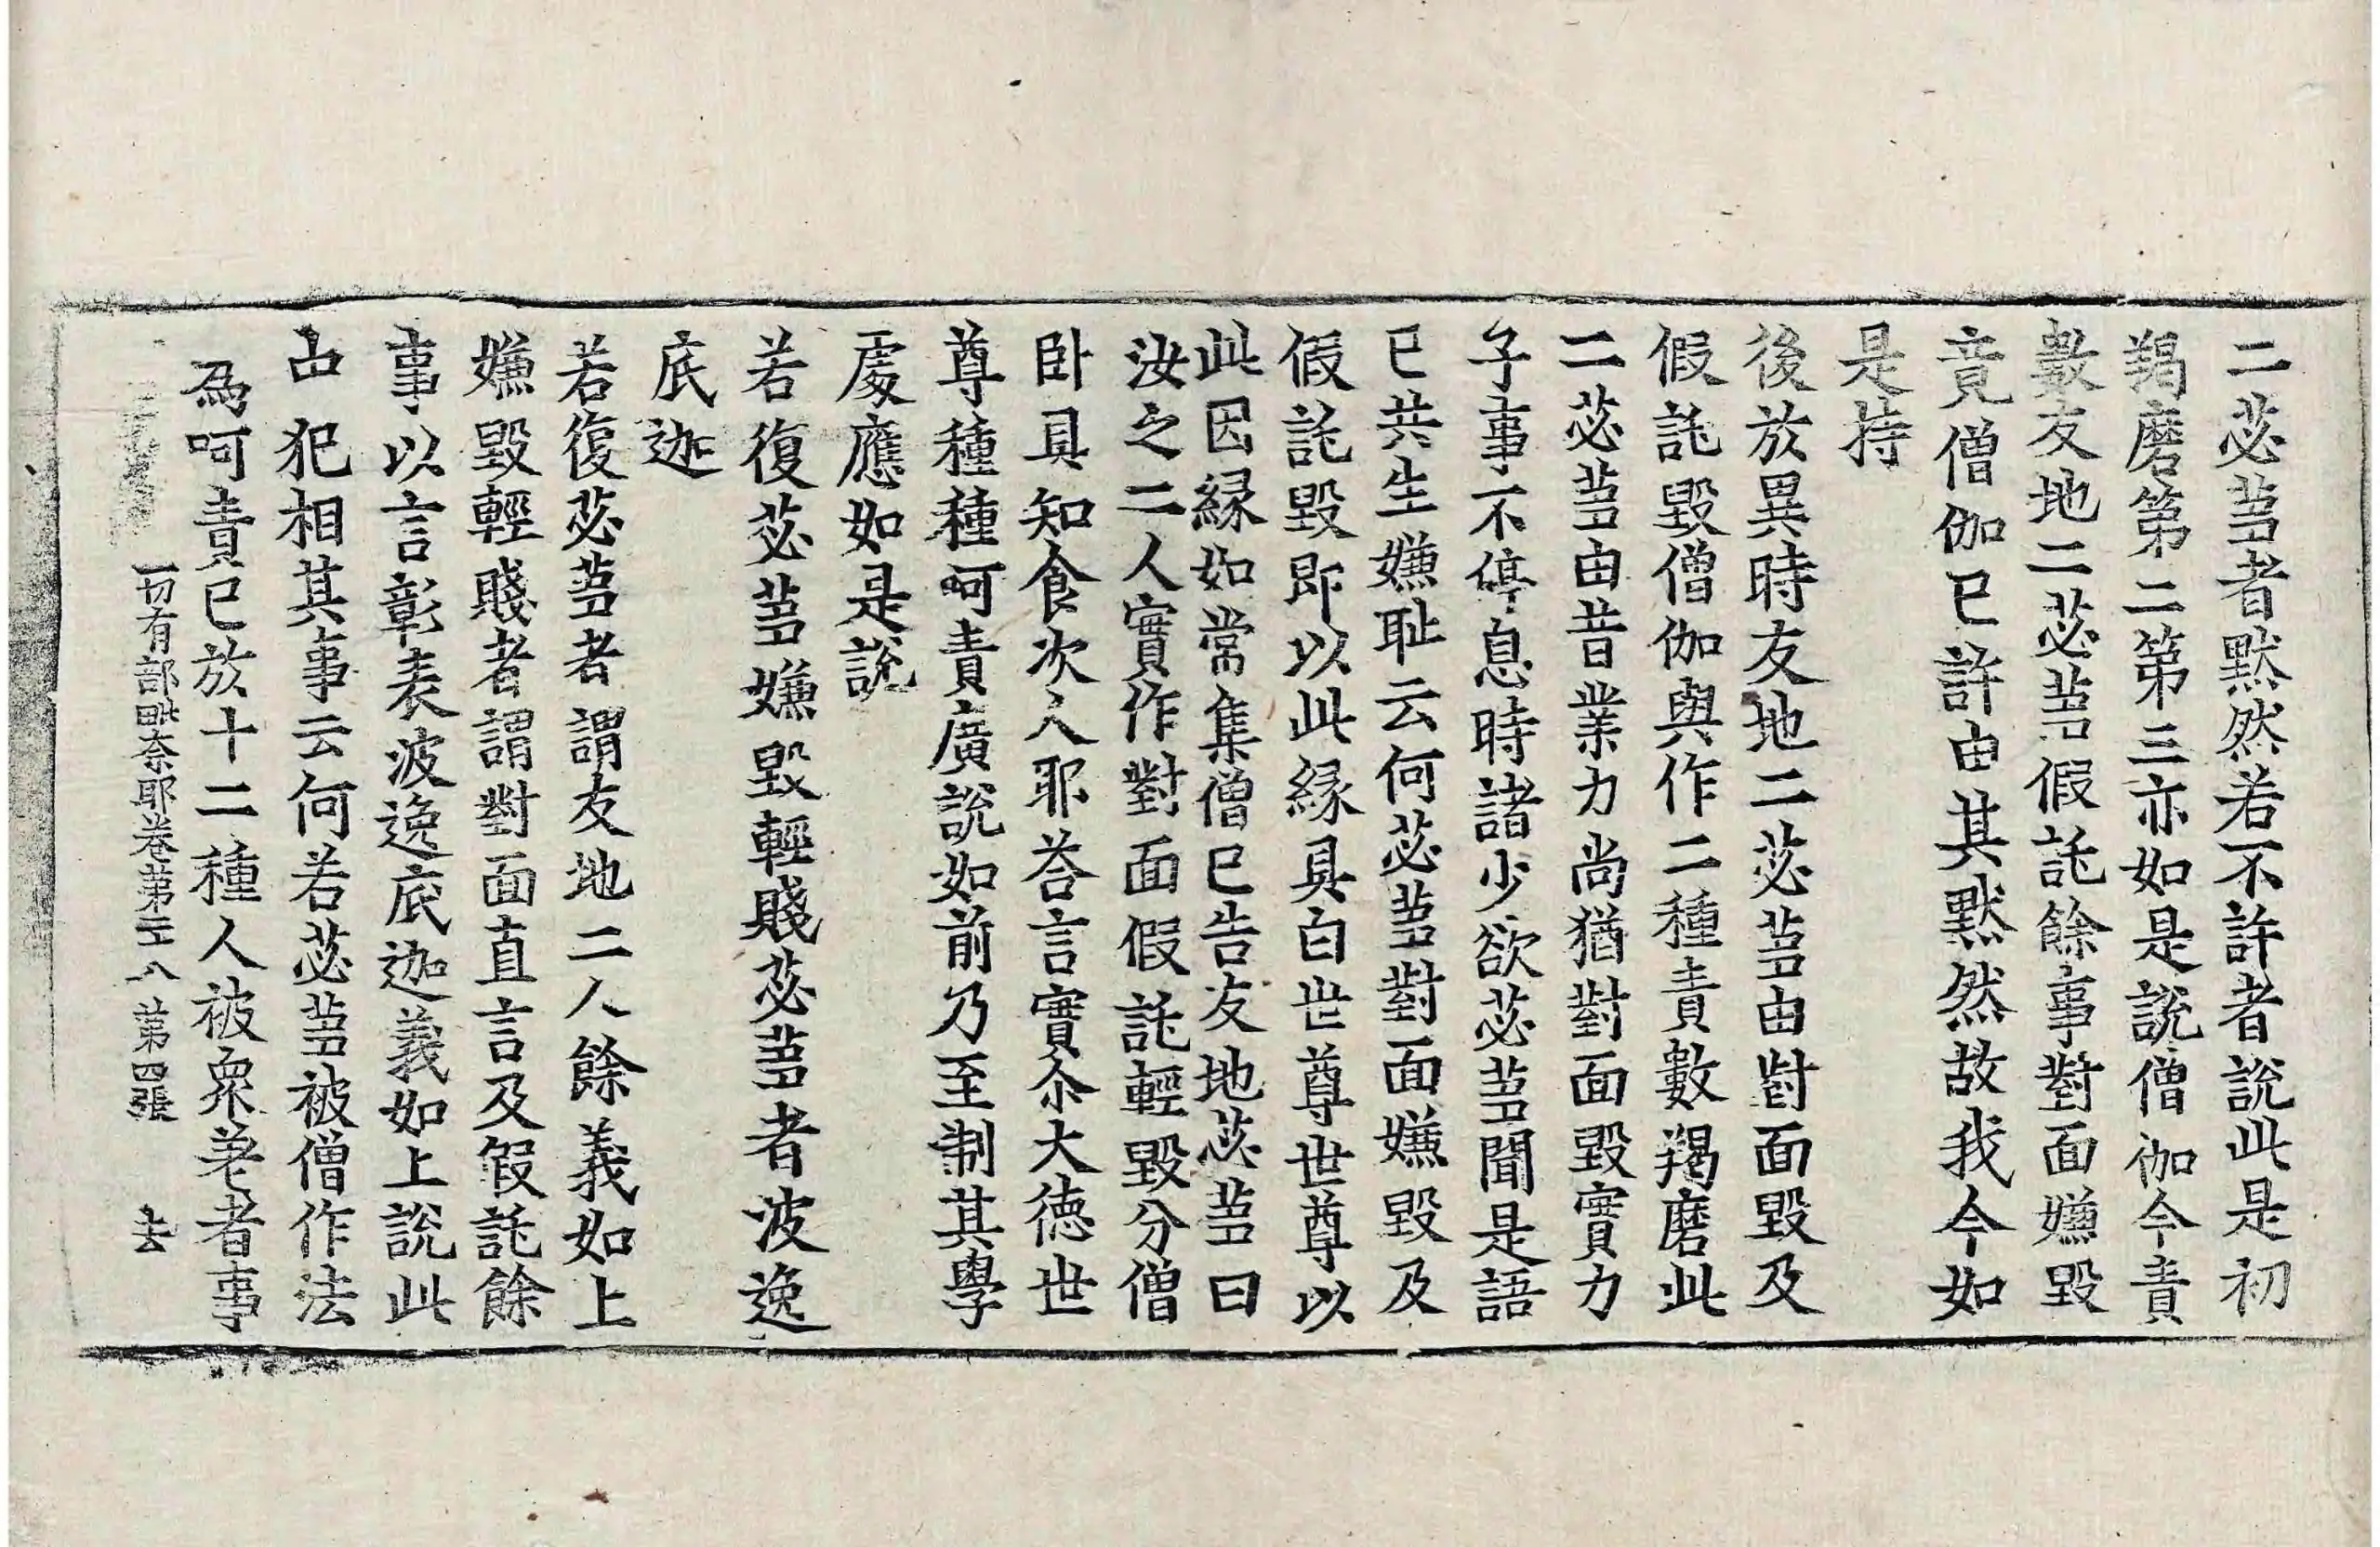 二苾芻者默然若不許者說此是初
羯磨第二第三亦如是說僧伽今責
數友地二苾芻假託餘事對面嫌毀
竟僧伽已許由其默然故我今如
是持
後於異時友地二苾芻由對面毀及
假託毀僧伽與作二種責數羯磨此
二苾芻由昔業力尚猶對面毀實力
子事不停息時諸少欲苾芻聞是語
已共生嫌耻云何苾芻對面嫌毀及
假託毀即以此縁具白世尊世尊以
此因縁如常集僧已告友地苾芻曰
汝之二人實作對面假託輕毀分僧
卧具知食次人耶荅言實尒大徳世
尊種種呵責廣說如前乃至制其學
處應如是說
若復苾芻嫌毀輕賤苾芻者波逸
底迦
若復苾芻者謂友地二人餘義如上
嫌毀輕賤者謂對面直言及假託餘
事以言彰表波逸底迦義如上說此
中犯相其事云何若苾芻被僧作法
為呵責已於十二種人被衆差者事
一切有部毗奈耶卷第二十八 第四張 去